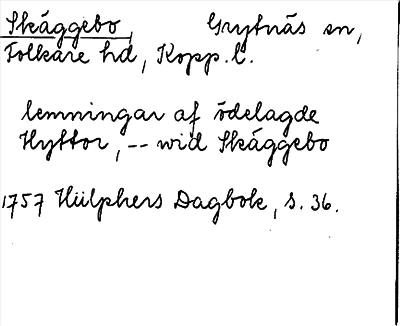 Skäggebo, Grytnäs sn,
Folkare hd, Kopp. l.
lemningar af ödelagde
Hyttor, -- wid Skäggebo
1757 Hülphers Dagbok, s. 36.